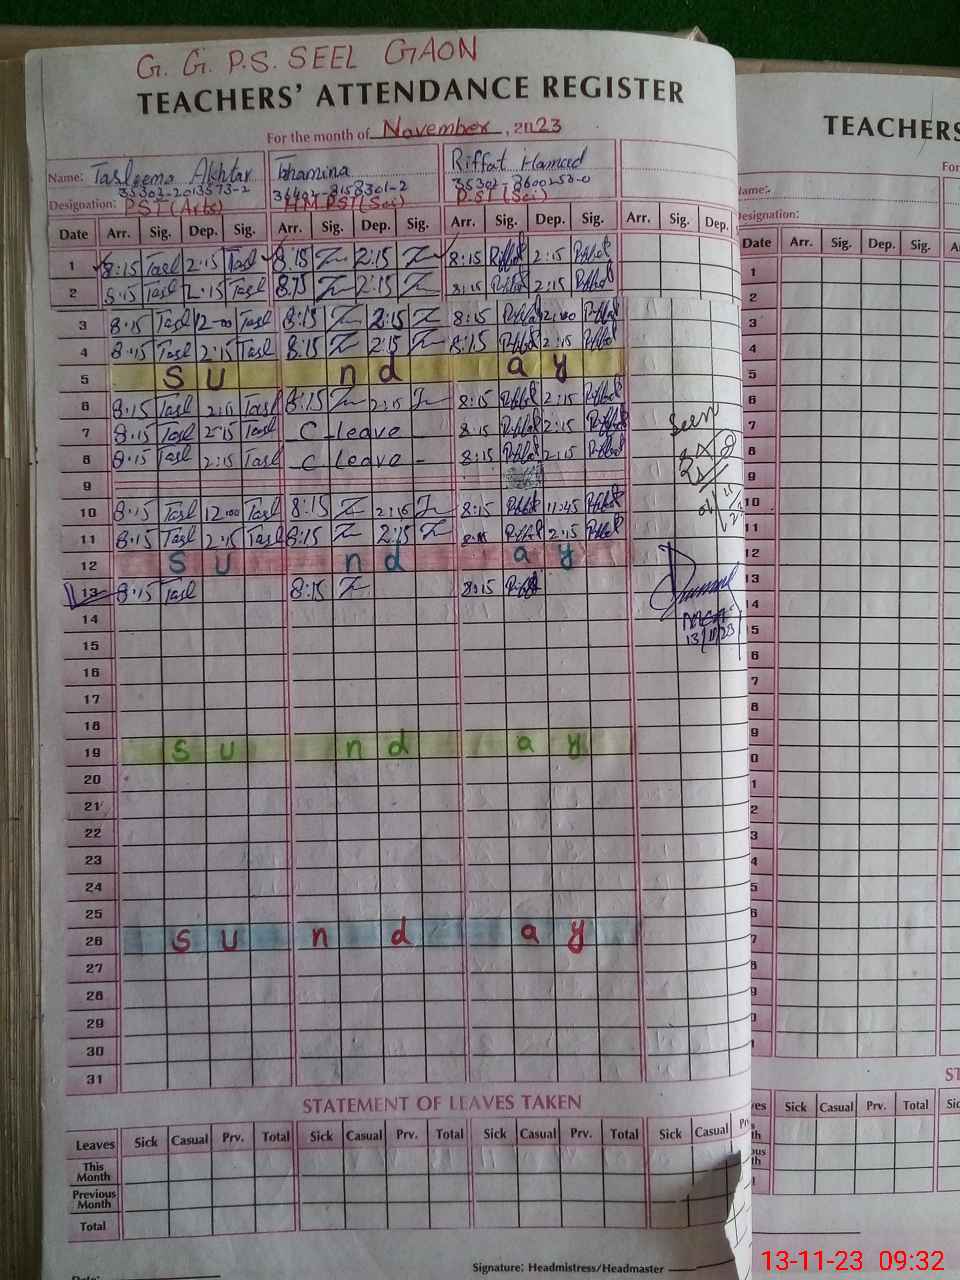 G. G. P.S. SEEL GAON
TEACHERS' ATTENDANCE REGISTER
For the month of November, 2023
Name: Tasleema Akhtar Tahmina Riffat Hameed
35302-2013573-2
Designation: PST (Arts) H.M.PST (Sci) P.ST (Sci)
Date Arr. Sig. Dep. Sig. Arr. Sig. Dep. Sig. Arr. Sig. Dep. Sig. Arr. Sig. Dep.
1 8:15 Tasl 2:15 Tasl 8:15 2:15 8:15 Riffat 2:15 Riffat
2 8:15 Tasl 2:15 Tasl 8:15 2:15 8:15 Riffat 2:15 Riffat
3 8:15 Tasl 12-00 Tasl 8:15 2:15 8:15 Riffat 2:00 Riffat
4 8:15 Tasl 2:15 Tasl 8:15 2:15 8:15 Riffat 2:15 Riffat
5 S u n d a y
6 8:15 Tasl 2:15 Tasl 8:15 2:15 8:15 Riffat 2:15 Riffat
7 8:15 Tasl 2:15 Tasl C-leave - 8:15 Riffat 2:15 Riffat
8 8:15 Tasl 2:15 Tasl C. Leave - 8:15 Riffat 2:15 Riffat
9
10 8:15 Tasl 12:00 Tasl 8:15 8:15 Riffat 11:45 Riffat
11 8:15 Tasl 2:15 Tasl 8:15 2:15 Riffat 2:15 Riffat
12 S u n d a y
13 8:15 Tasl 8:15 8:15 Riffat
14
15
16
17
18
19 S u n d a y
20
21
22
23
24
25
26 S u n d a y
27
28
29
30
31
Seen
13/11/23
STATEMENT OF LEAVES TAKEN
Leaves Sick Casual Prv. Total Sick Casual Prv. Total Sick Casual Prv. Total Sick Casual
This Month
Previous Month
Total
Signature: Headmistress/Headmaster
TEACHERS
For
Designation:
Date Arr. Sig. Dep. Sig.
1
2
3
4
5
6
7
8
9
10
11
12
13
14
Sick Casual Prv. Total
13-11-23 09:32